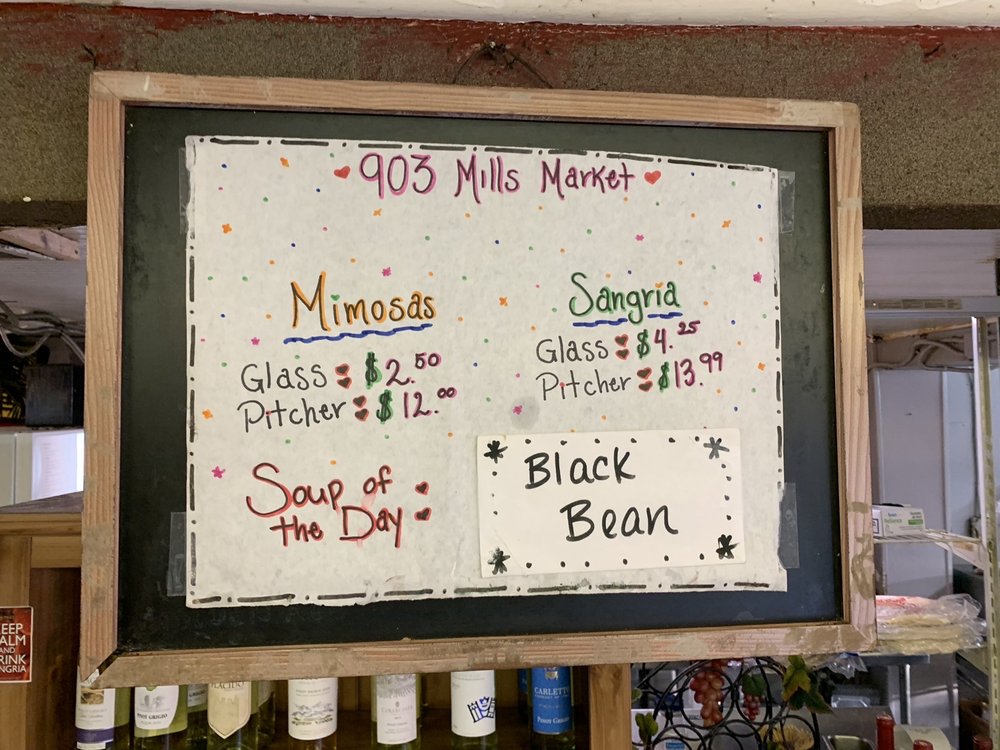 903 Mills Market
Mimosas
Glass: $2.50
Pitcher: $12.00
Sangria
Glass: $4.25
Pitcher: $13.99
Soup of
the Day:
Black
Bean
KEEP
CALM
AND
DRINK
SANGRIA
PINOT GRIGIO
CARLETTO
PINOT GRIGIO